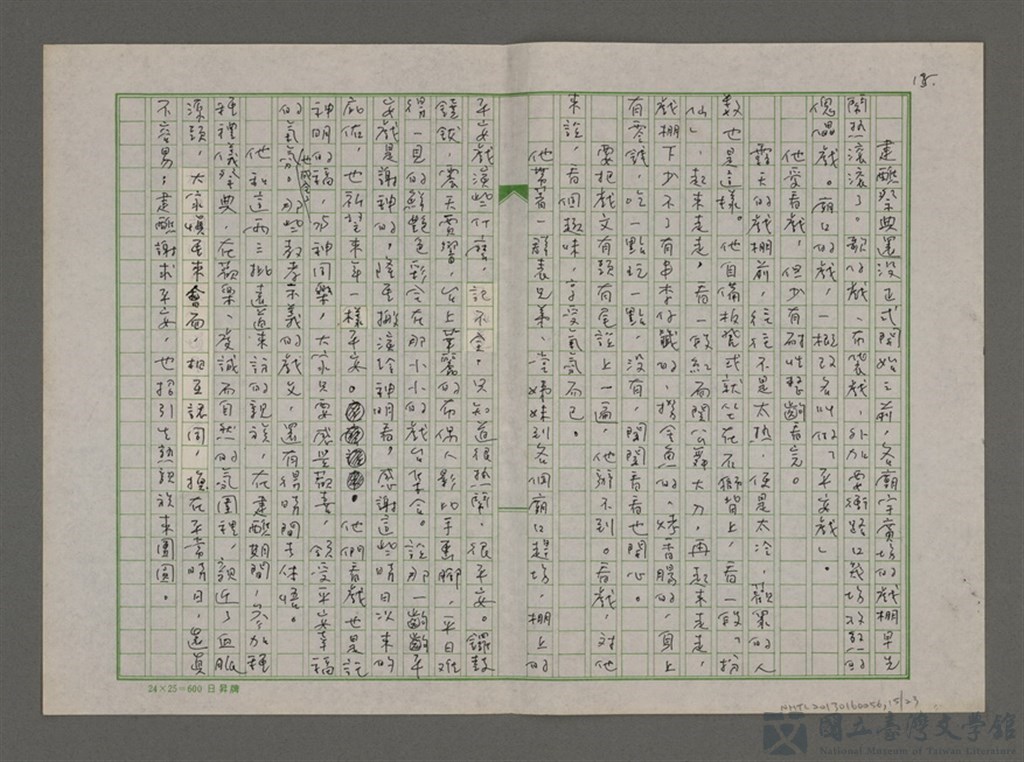 15.
建醮祭典還没正式開始之前，各廟宇廣場的戲棚早先
鬧熱滚滚了。歌仔戲、布袋戲，外加要衝路口幾場
傀儡戲。廟口的戲，一概改名叫做「平安戲」。
他愛看戲，但少有耐性整齣看完。
露天的戲棚前，往往不是太熱，便是太冷，觀眾的人
數也是這樣。他自備板凳或就坐在石獅背上，看一段「扮
仙」，起來走走，看一段紅面關公舞大刀，再起來走走，
戲棚下少不了有串李仔籤的、撈金魚的、烤香腸的，身上
有零錢，吃一點玩一點，没有，閒閒看看也開心。
要把戲文有頭有尾說上一遍，他辦不到。看戲，對他
來說，看個趣味，享受氣氛而已。
他帶著一群表兄弟、堂姊妹到各個廟口趕場，棚上的
平安戲演些什麼，記不全，只知道很熱鬧、很平安。鑼鼓
鐃鈸，震天價響，台上華麗的布偶人影比手畫腳，平日难
得一見的鮮艷色彩全在那小小的戲台集合。說那一齣齣平
安戲是謝神的，隆重搬演給神明看，感謝這些時日以來的
庇佑，也祈望來年一樣平安。他們看戲也是託
神明的福，以神同樂，大家只要感覺歡喜，領受平安幸福
的氣氛。那些教孝示義的戲文，還有得時間去体悟。
他和這兩三批遠道來訪的親族，在建醮期間，參加種
種禮儀祭典，在歡樂、虔誠而自然的氣圍裡，親近了血脈
源頭，大家慎重來會面，相互認同，換在平常時日，還真
不容易；建醮謝求平安，也招引生熱親族來團圓。
24×25=600 日昇牌
NMTL20130160056,15/23
國立臺灣文學館
National Museum of Taiwan Literature